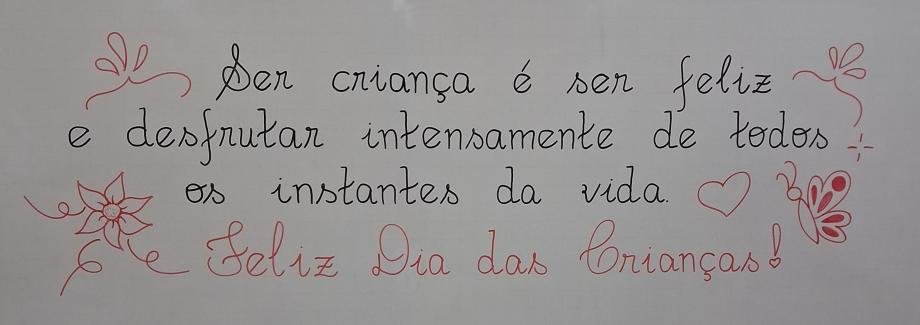 Ser criança é ser feliz
e desfrutar intensamente de todos
os instantes da vida.
Feliz Dia das Crianças!